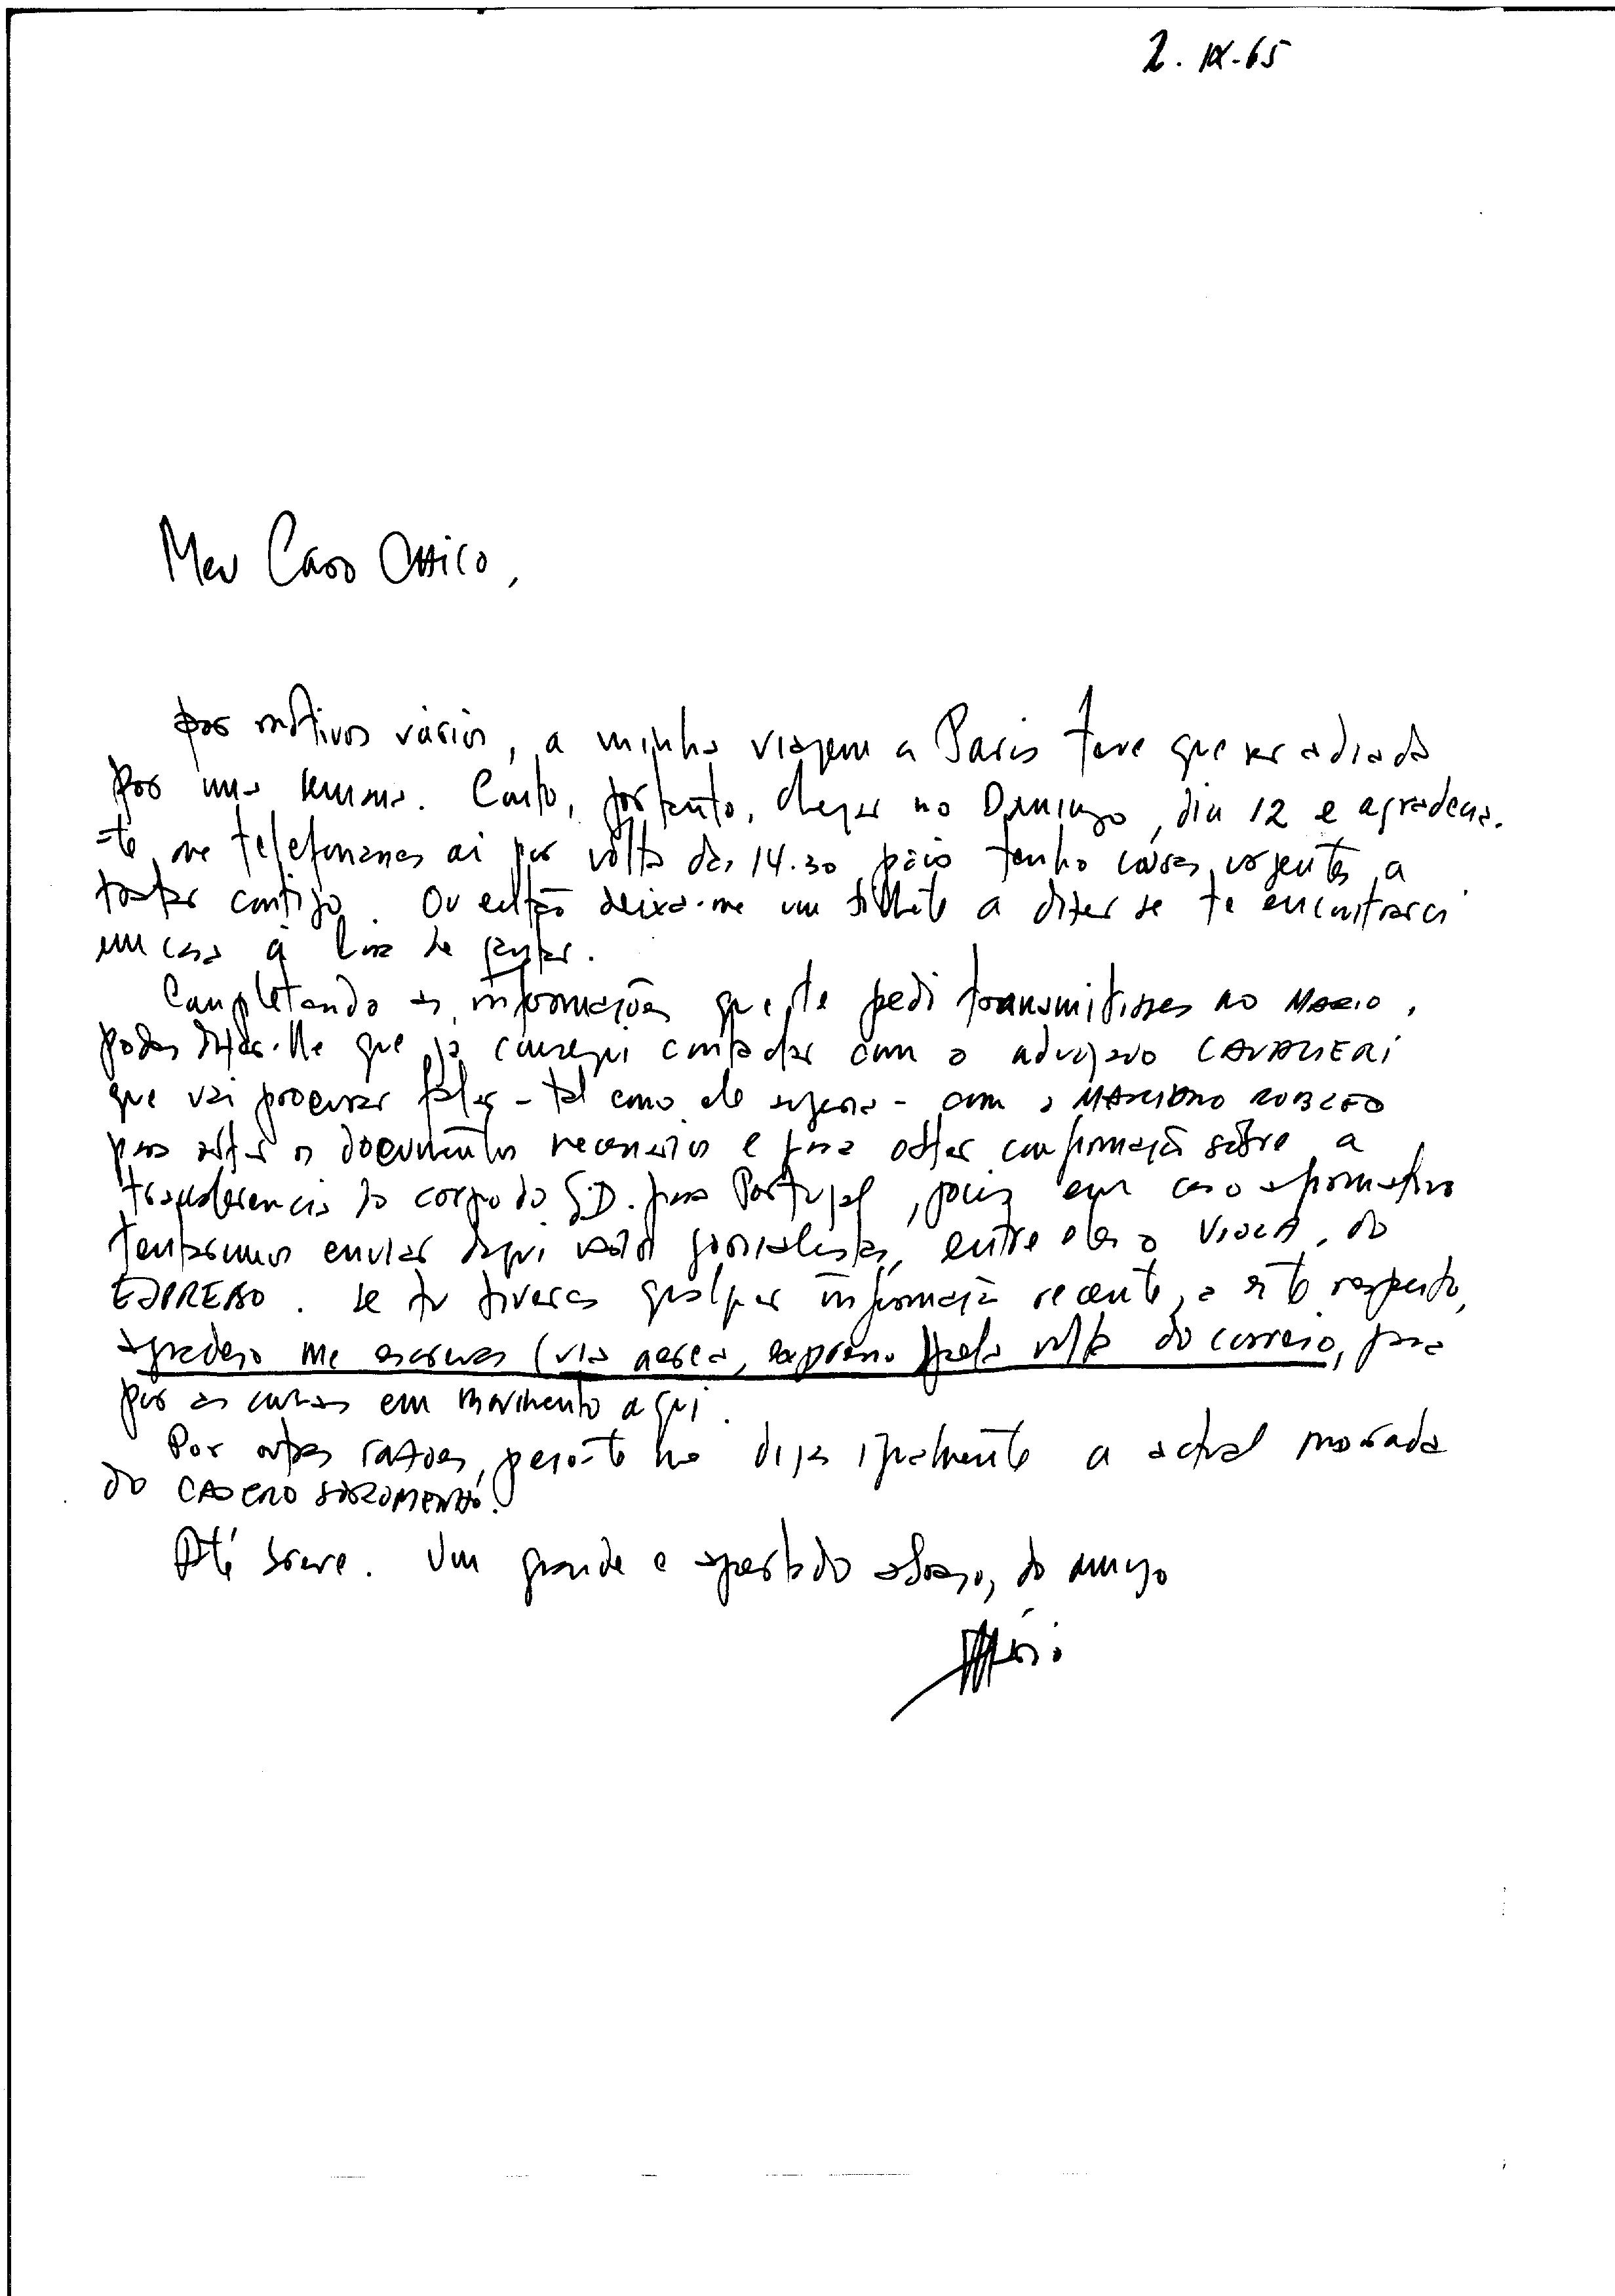 2. IX-65
Meu Caro Chico,
por motivos vários, a minha viagem a Paris teve que ser adiada
por uma semana. Conto, portanto, chegar no Domingo, dia 12 e agradecia-
-te me telefonasses aí por volta das 14.30 pois tenho coisas urgentes a
tratar contigo. Ou então deixa-me um bilhete a dizer se te encontrarei
em casa à hora de jantar.
Completando as informações que te pedi transmitisses ao MARIO,
podes dizer-lhe que já consegui contactar com o advogado CAVALIERI
que vai procurar falar - tal como ele sugeria - com o MARIANO ROBLES
para obter os documentos necessários e para obter confirmação sôbre a
transferencia do corpo do G.D. para Portugal, pois em caso afirmativo
tentaremos enviar daqui vários jornalistas, entre eles o VIOLA, do
ESPRESSO. Se tu tiveres qualquer informação recente, a este respeito,
agradeço me escrevas (via aerea, expresso) pela volta do correio, para
pôr as coisas em movimento aqui.
Por outras razões, peço-te me digas igualmente a actual morada
do CASTRO SOROMENHO.
Até breve. Um grande e apertado abraço, do amigo